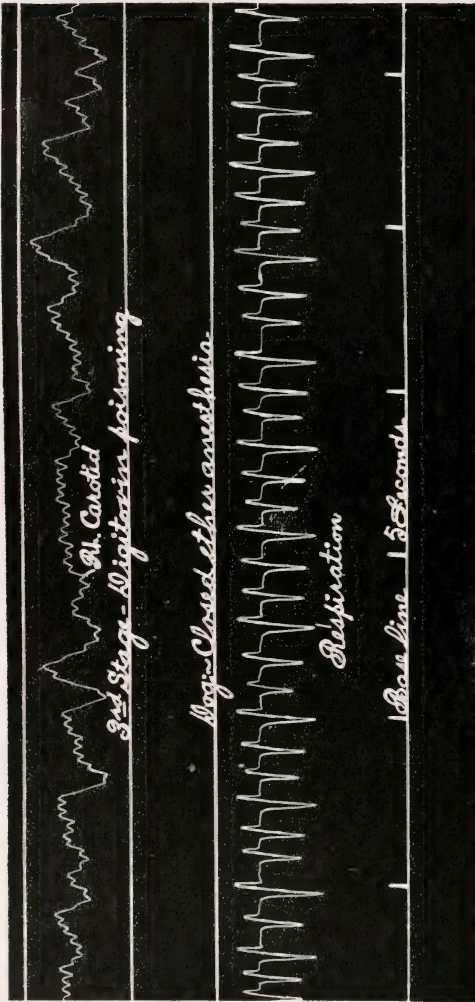 Rt. Carotid
3rd Stage - Digitoxin poisoning
Dog:- Closed ether anesthesia.
Respiration
Base line 5 Seconds